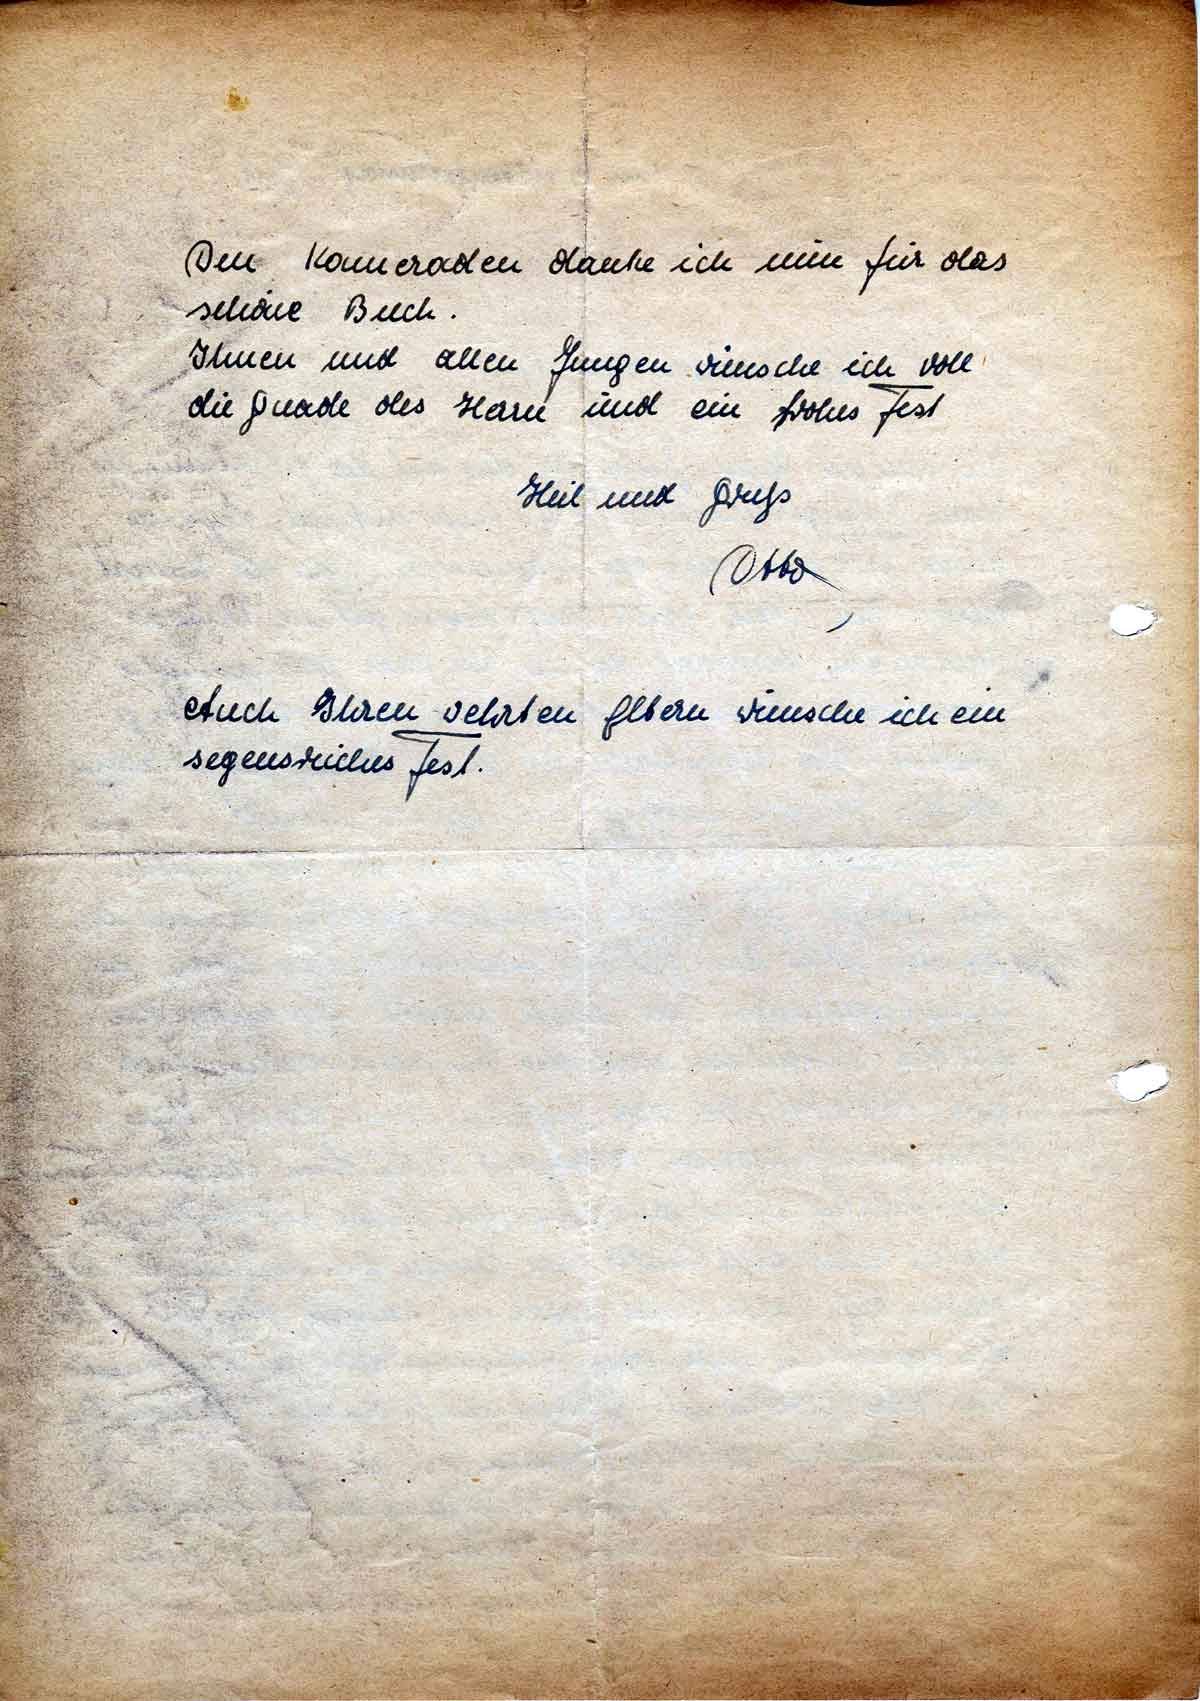 Den Kameraden danke ich nun für das
schöne Buch.
Ihnen und allen Jungen wünsche ich voll
die Gnade des Herrn und ein frohes Fest
Heil und Gruß
Otto
Auch Ihren vehrten Eltern wünsche ich ein
segensreiches Fest.